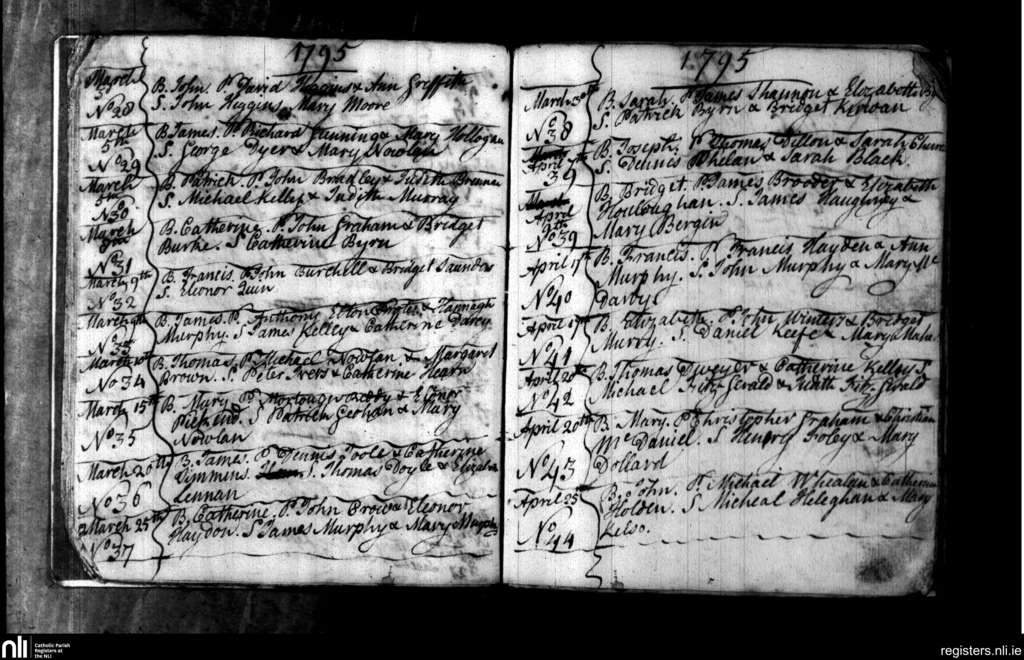 1795
March
N.o 28
B. John. P. David Higgins & Ann Griffith
S. John Higgins. Mary Moore
March
5th
N.o 29
B James. P. Richard Canning & Mary Hollogan
S. George Dyer & Mary Nowlan
March
N.o 30
B. Patrick. P. John Brackley & Judith Brenner
S. Michael Kelly & Judith Murray
March
8th
N.o 31
B. Catherine. P. John Graham & Bridget
Burke. S Catherine Byrn
March 9th
N.o 32
B. Francis. P. John Burchill & Bridget Saunders
S. Elenor Quin
March 9th
N.o 33
B. James. P. Anthony & Hannagh
Murphy. S James Kelley & Catherine Darcy
March
N.o 34
B. Thomas. P. Michael Nowlan. & Margaret
Brown. S. Peter Ivers & Catherine Hearn
March 15th
N.o 35
B. Mary P. & Elenor
S Patrick Geohan & Mary
Nowlan
March 20th
N.o 36
B. James. P. Dennis Toole & Catherine
Timmins. S. Thomas Doyle & Elizabeth
Lennan
March 25th
N.o 37
B. Catherine. P. John Crow & Elenor
Haydon. S James Murphy & Mary Murphy
1795
March 30th
N.o 38
B. Sarah. P. James Shannon & Elizabeth
S. Patrick Byrn & Bridget Kirwan
April 7th
39
B. Joseph. P Thomas Dillon & Sarah
S. Dennis Phelan & Sarah Black.
April
9th
N.o 39
B Bridget. P James Brooder & Elizabeth
Houloughan. S. James Haughney &
Mary Bergin
April 17th
N.o 40
B. Francis. P. Francis Hayden & Ann
Murphy. S. John Murphy & Mary Mc
Darby
April 19th
N.o 41
B. Elizabeth. P. John Winters & Bridget
Murry. S. Daniel Keefe & Mary
April 20th
N.o 42
B. Thomas Dweyer & Catherine Kelly S.
Michael Fitz Gerald & Judith Fitz Gerald
April 20th
N.o 43
B. Mary. P Christopher Graham & Christian
McDaniel. S Henery Foley & Mary
Dollard
April 25
N.o 44
B. John. P. Michael Whealan & Catherine
Holden. S Micheal Heleghan & Mary
Kelso.
nli
Catholic Parish
Registers at
the NLI
registers.nli.ie